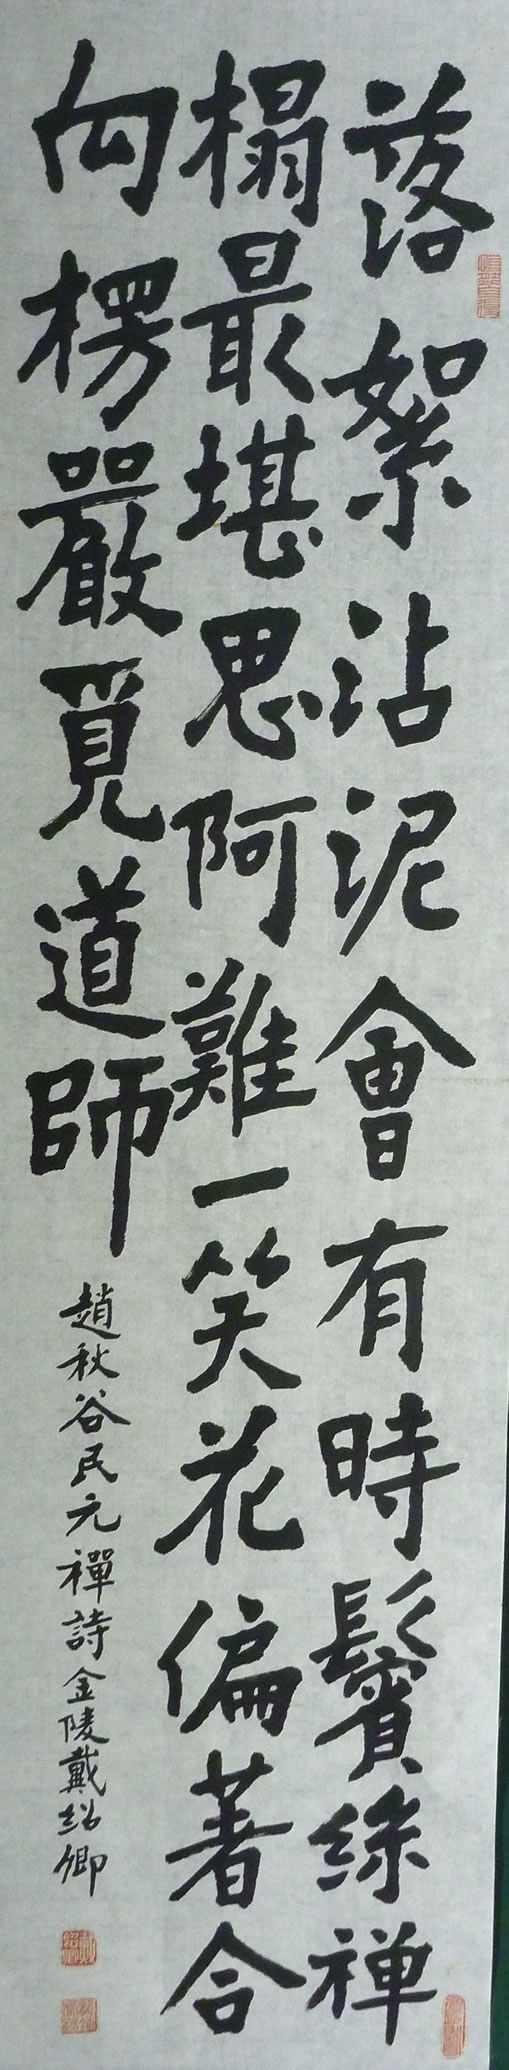 落絮沾泥會有時鬢絲禅
榻最堪思阿難一笑花偏著合
向楞嚴覓道師
趙秋谷民元禪詩金陵戴紹卿